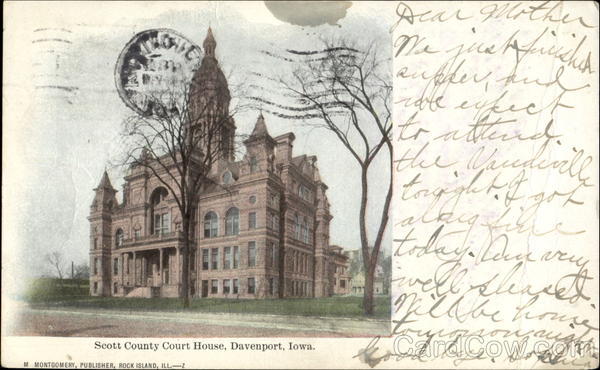 Dear Mother
We just finished
supper, and
we expect
to attend
the Vaudiville
tonight. I got
along fine
today. Am very
well pleased.
Will be home
tomorrow
Good
Scott County Court House, Davenport, Iowa.
M MONTGOMERY, PUBLISHER, ROCK ISLAND, ILL.—Z
CardCow.com